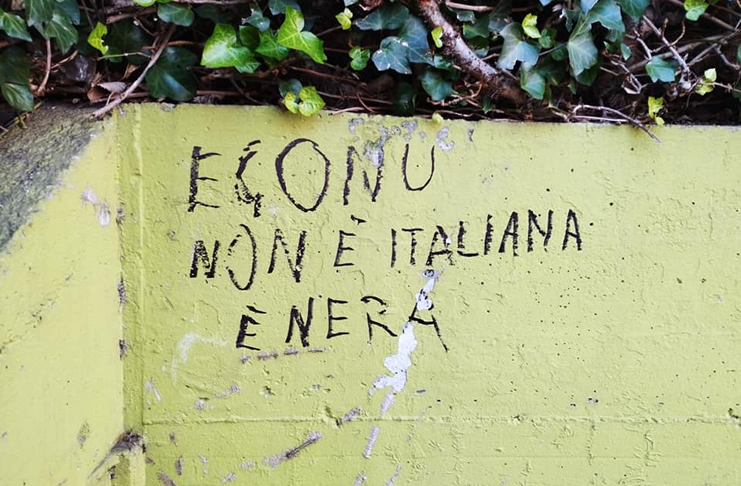 EGONU
NON È ITALIANA
È NERA